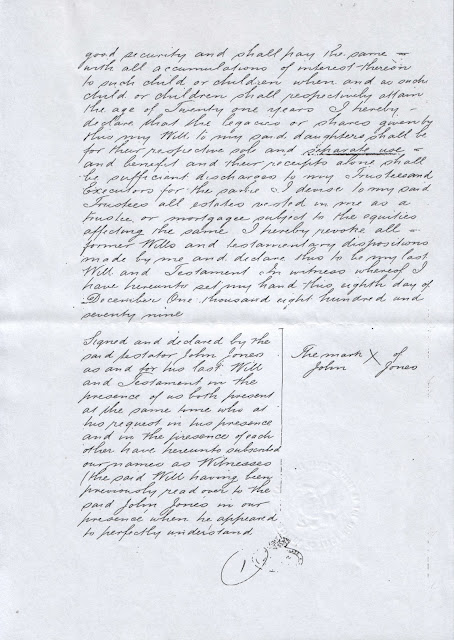 good security and shall pay the same
with all accumulations of interest thereon
to such child or children when and as such
child or children shall respectively attain
the age of Twenty one years I hereby
declare that the legacies or shares given by
this my Will to my said daughters shall be
for their respective sole and separate use
and benefit and their receipts alone shall
be sufficient discharges to my Trustees and
Executors for the same I devise to my said
Trustees all estates vested in me as a
trustee or mortgagee subject to the equities
affecting the same I hereby revoke all
former Wills and testamentary dispositions
made by me and declare this to be my last
Will and Testament In witness whereof I
have hereunto set my hand this eighth day of
December One thousand eight hundred and
seventy nine
Signed and declared by the
said testator John Jones
as and for his last Will
and Testament in the
presence of us both present
at the same time who at
his request in his presence
and in the presence of each
other have hereunto subscribed
our names as Witnesses
(the said Will having been
previously read over to the
said John Jones in our
presence when he appeared
to perfectly understand
The mark X of
John Jones